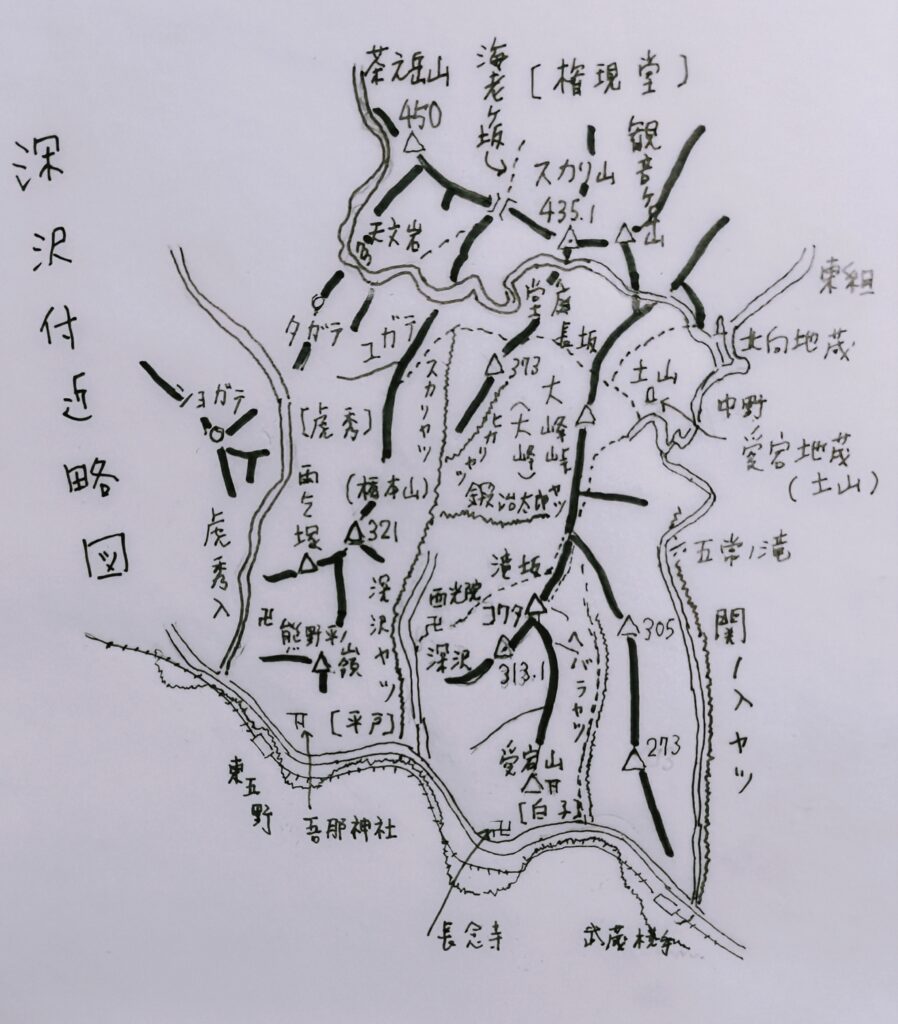 深沢付近略図
茶元岳山
450
海老ヶ坂
[権現堂]
スカリ山
435.1
観音ヶ岳
天文岩
タガテ
ユガテ
ショガテ
[虎秀]
虎秀入
スカリヤツ
堂庭
長坂
373
大峰
(大峰)
ヒカリヤツ
鍛冶太郎ヤツ
東組
北向地蔵
土山
中野
愛宕地蔵
(土山)
五常ノ滝
関ノ入ヤツ
(橋本山)
321
雨乞塚
卍
熊野平ノ嶺
深沢ヤツ
[平戸]
滝坂
西光院
卍
コワタ
深沢
313.1
ヘバラヤツ
305
273
愛宕山
[白子]
卍
東吾野
吾那神社
長念寺
武蔵横手